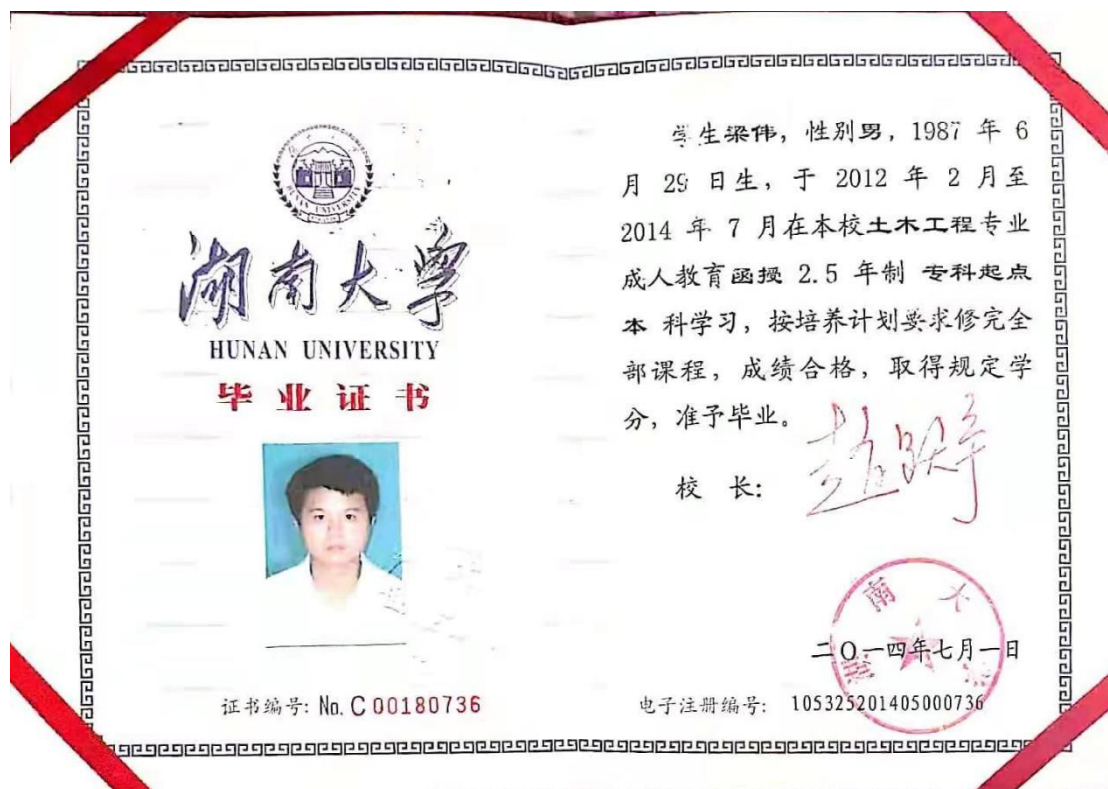 湖南大学
HUNAN UNIVERSITY
毕业证书
证书编号: No. C 00180736
学生梁伟，性别男，1987 年 6
月 29 日生，于 2012 年 2 月至
2014 年 7 月在本校土木工程专业
成人教育函授 2.5 年制 专科起点
本 科学习，按培养计划要求修完全
部课程，成绩合格，取得规定学
分，准予毕业。
校 长:
二〇一四年七月一日
电子注册编号: 105325201405000736
湖南大学